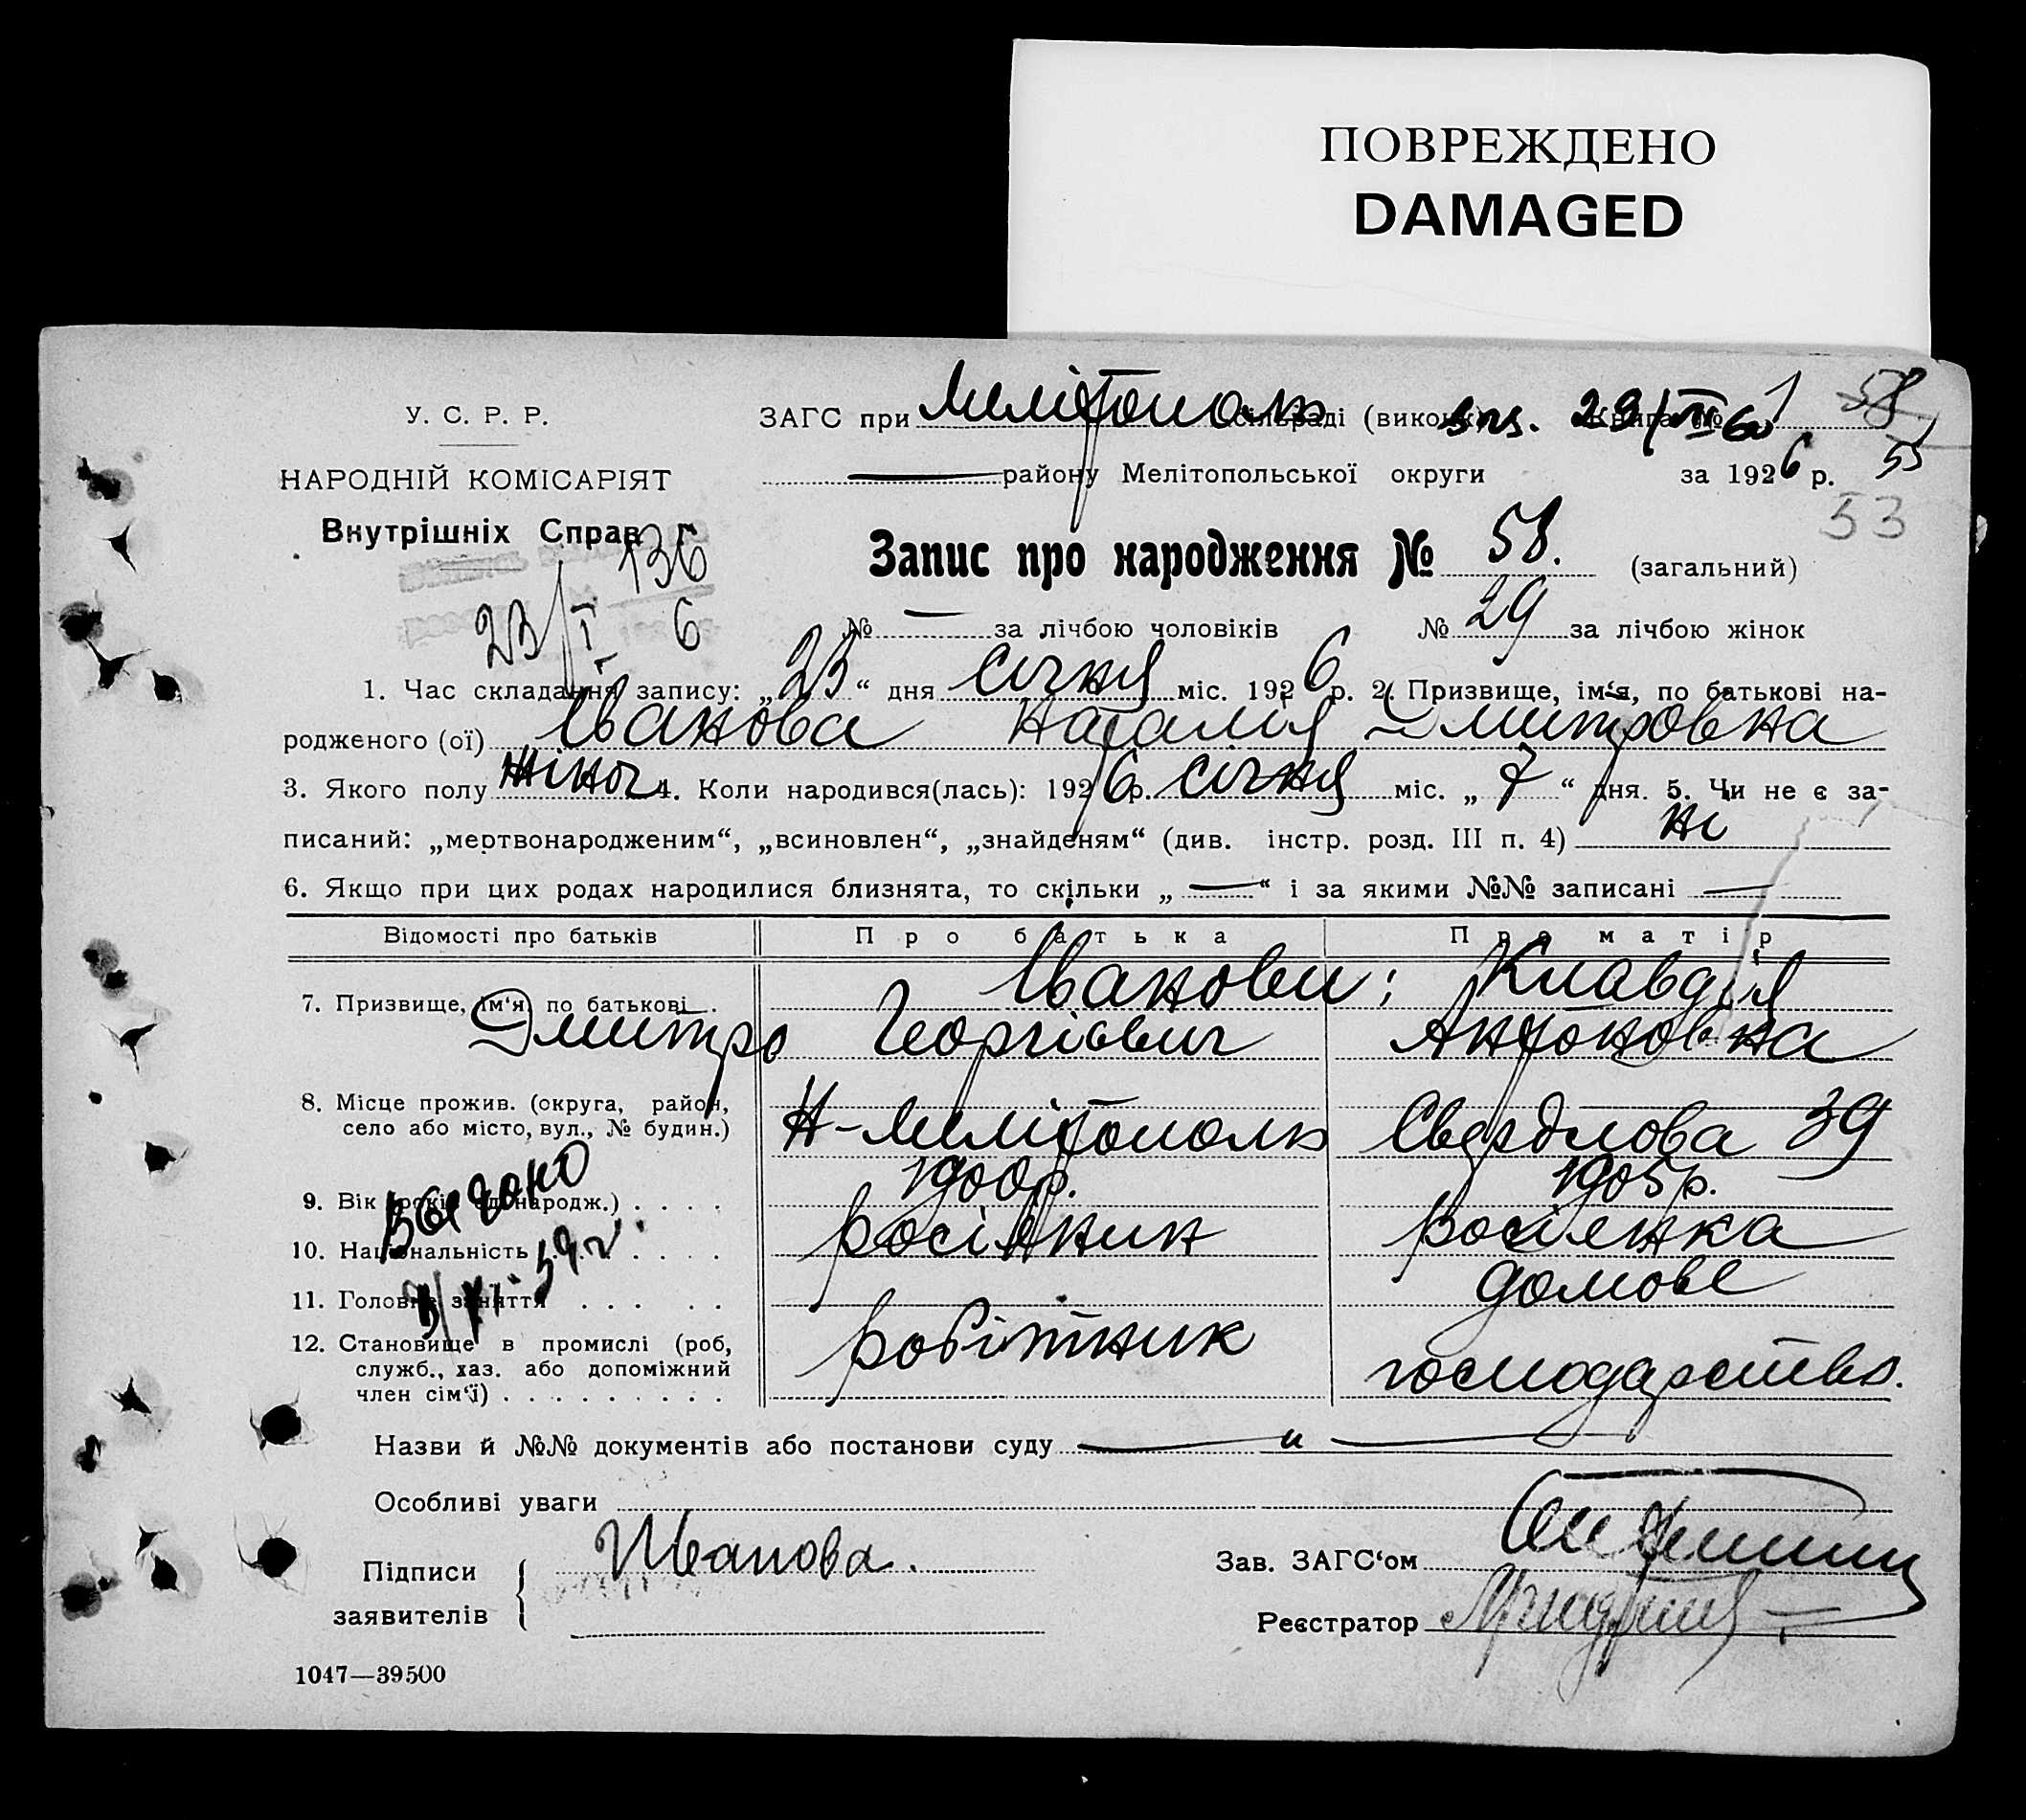 ПОВРЕЖДЕНО
DAMAGED
У. С. Р. Р.
ЗАГС при Мелітополь сільраді (виконк.) Книга № 1 58
НАРОДНІЙ КОМІСАРІЯТ
— району Мелітопольської округи за 1926 р. 55
Внутрішніх Справ
53
136
Запис про народження № 58. (загальний)
23/I 6
№ — за лічбою чоловіків № 29 за лічбою жінок
1. Час складання запису: „23“ дня січня міс. 1926 р. 2. Призвище, ім‘я, по батькові на-
родженого (ої) Іванова Наталія Дмитровна
3. Якого полу жіноч 4. Коли народився(лась): 1926 р. січня міс. „7“ дня. 5. Чи не є за-
писаний: „мертвонародженим“, „всиновлен“, „знайденям“ (див. інстр. розд. III п. 4) ні
6. Якщо при цих родах народилися близнята, то скільки „—“ і за якими №№ записані —
Відомості про батьків Про батька Про матір
Іванови; Клавдія
7. Призвище, ім‘я, по батькові
Дмитро Георгієвич Антоновна
8. Місце прожив. (округа, район,
село або місто, вул., № будин.) Н-Мелітополь Свердлова 39
9. Вік (років од народж.) . . . . 1900р. 1905р.
10. Національність . . . . росіянин росіянка
Выдано
11. Головне заняття . . . . . домове
12. Становище в промислі (роб,
служб., хаз. або допоміжний
член сім‘ї) . . . . . . . . . робітник господарство.
Назви й №№ документів або постанови суду — " —
Особливі уваги
Підписи
заявителів
Иванова.
Зав. ЗАГС‘ом
Реєстратор
1047—39500